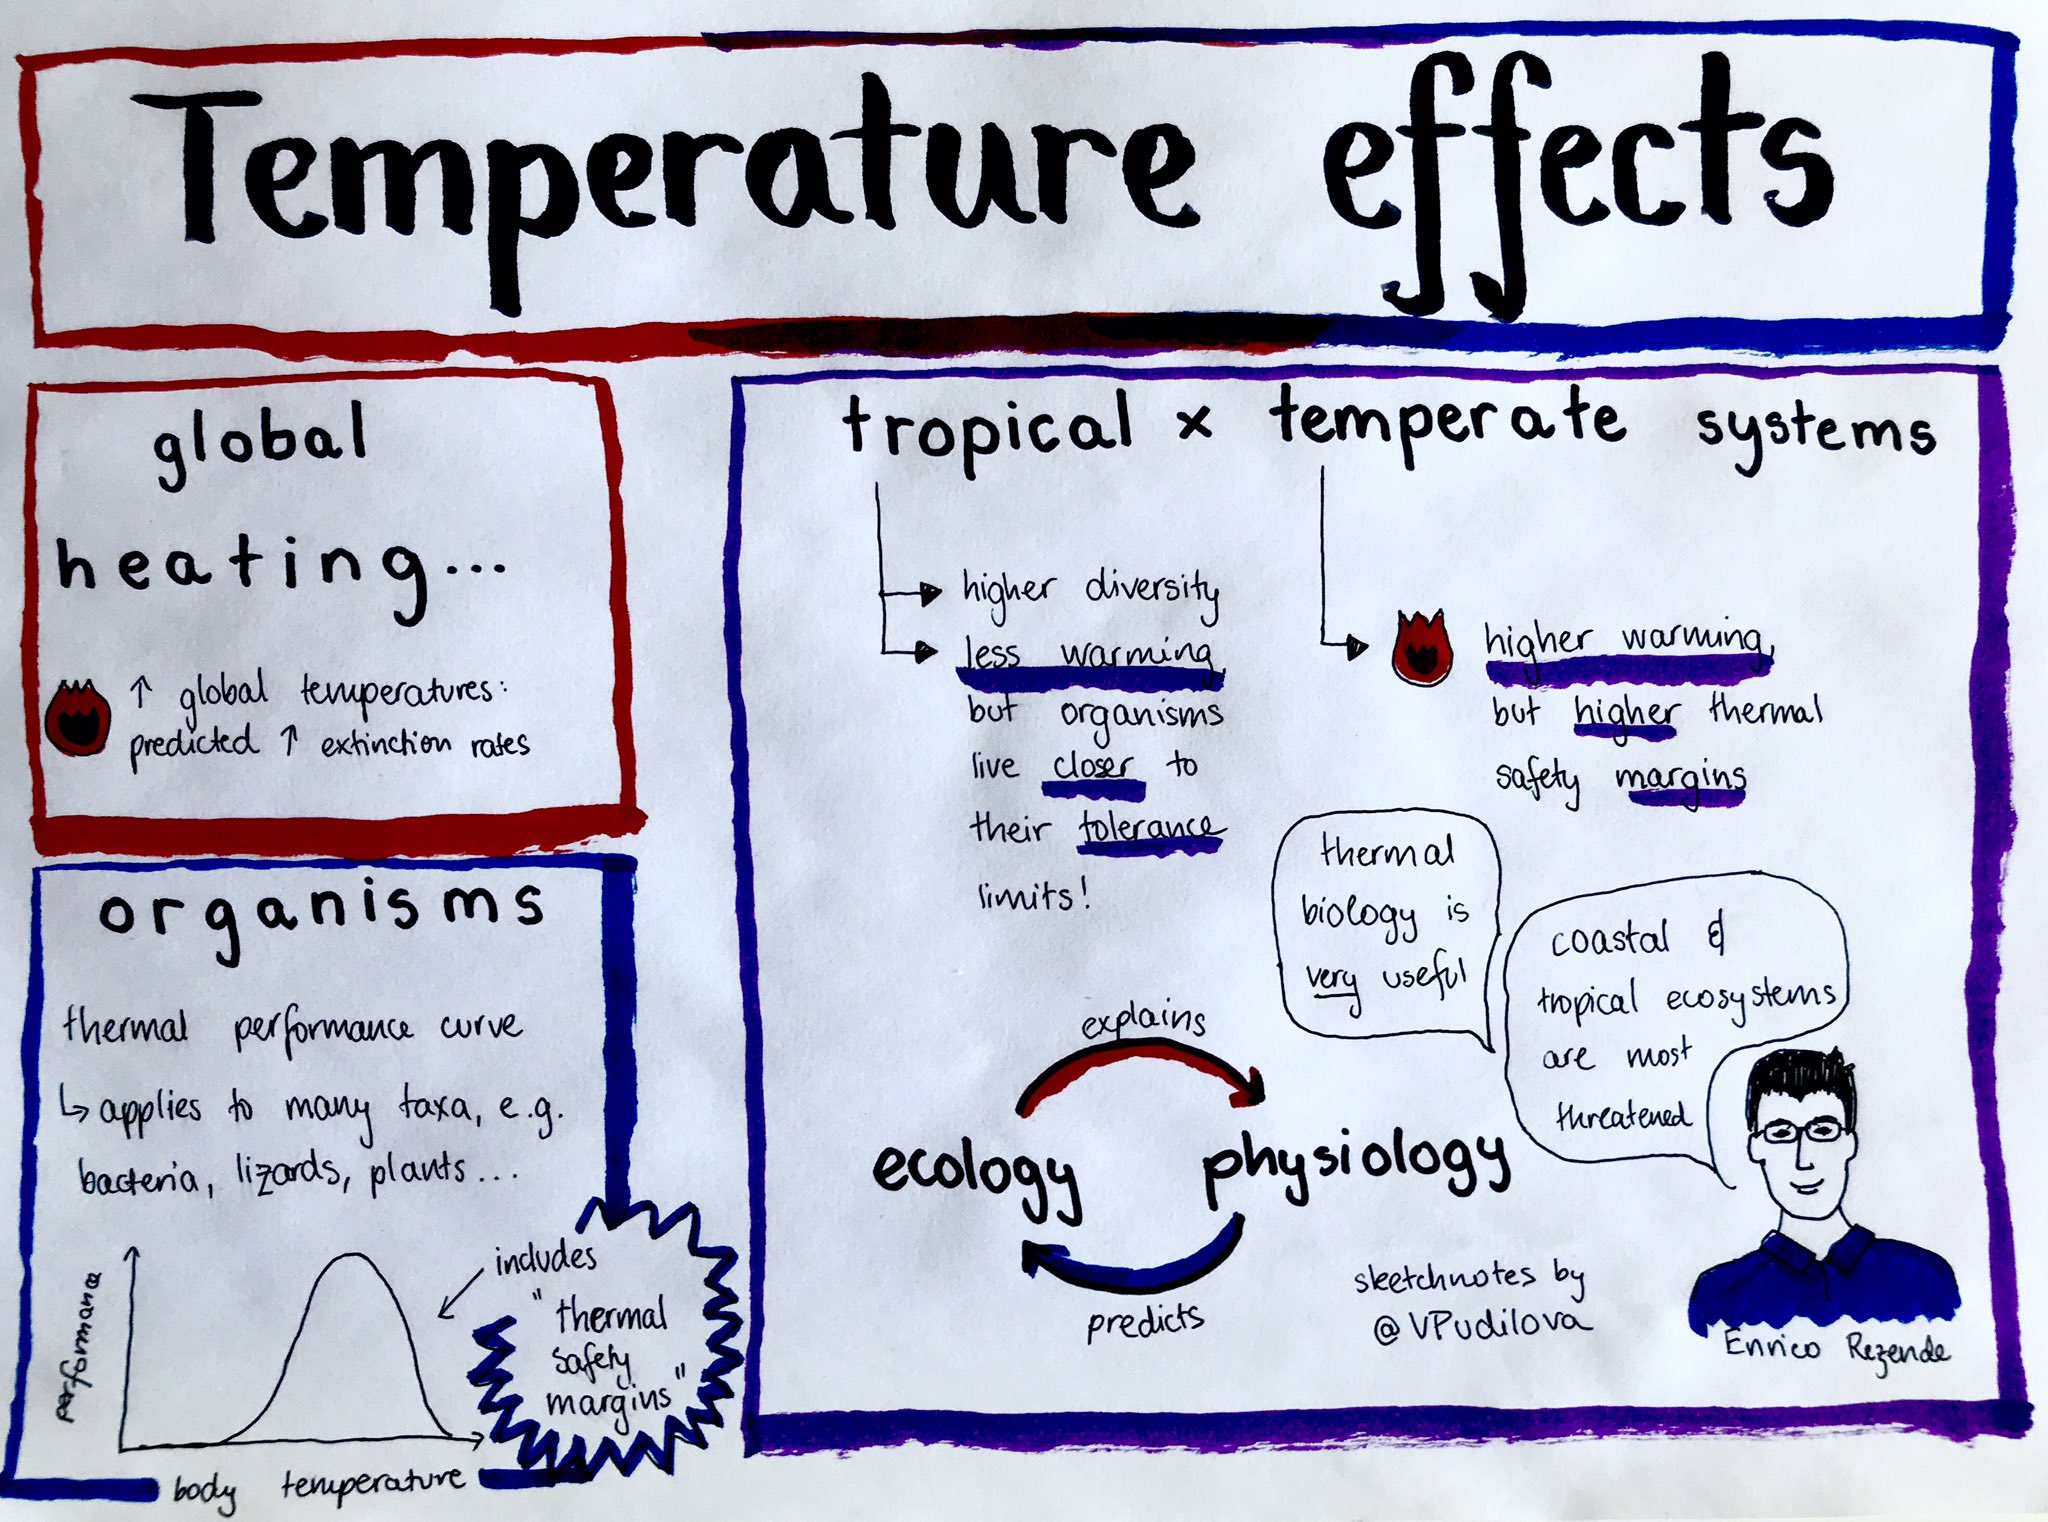 Temperature effects
global
heating...
↑ global temperatures:
predicted ↑ extinction rates
organisms
thermal performance curve
↳ applies to many taxa, e.g.
bacteria, lizards, plants...
performance
body temperature
includes
"thermal
safety
margins"
tropical x temperate systems
higher diversity
less warming,
but organisms
live closer to
their tolerance
limits!
higher warming,
but higher thermal
safety margins
thermal
biology is
very useful
coastal &
tropical ecosystems
are most
threatened
explains
ecology physiology
predicts
sketchnotes by
@VPudilova
Enrico Rezende